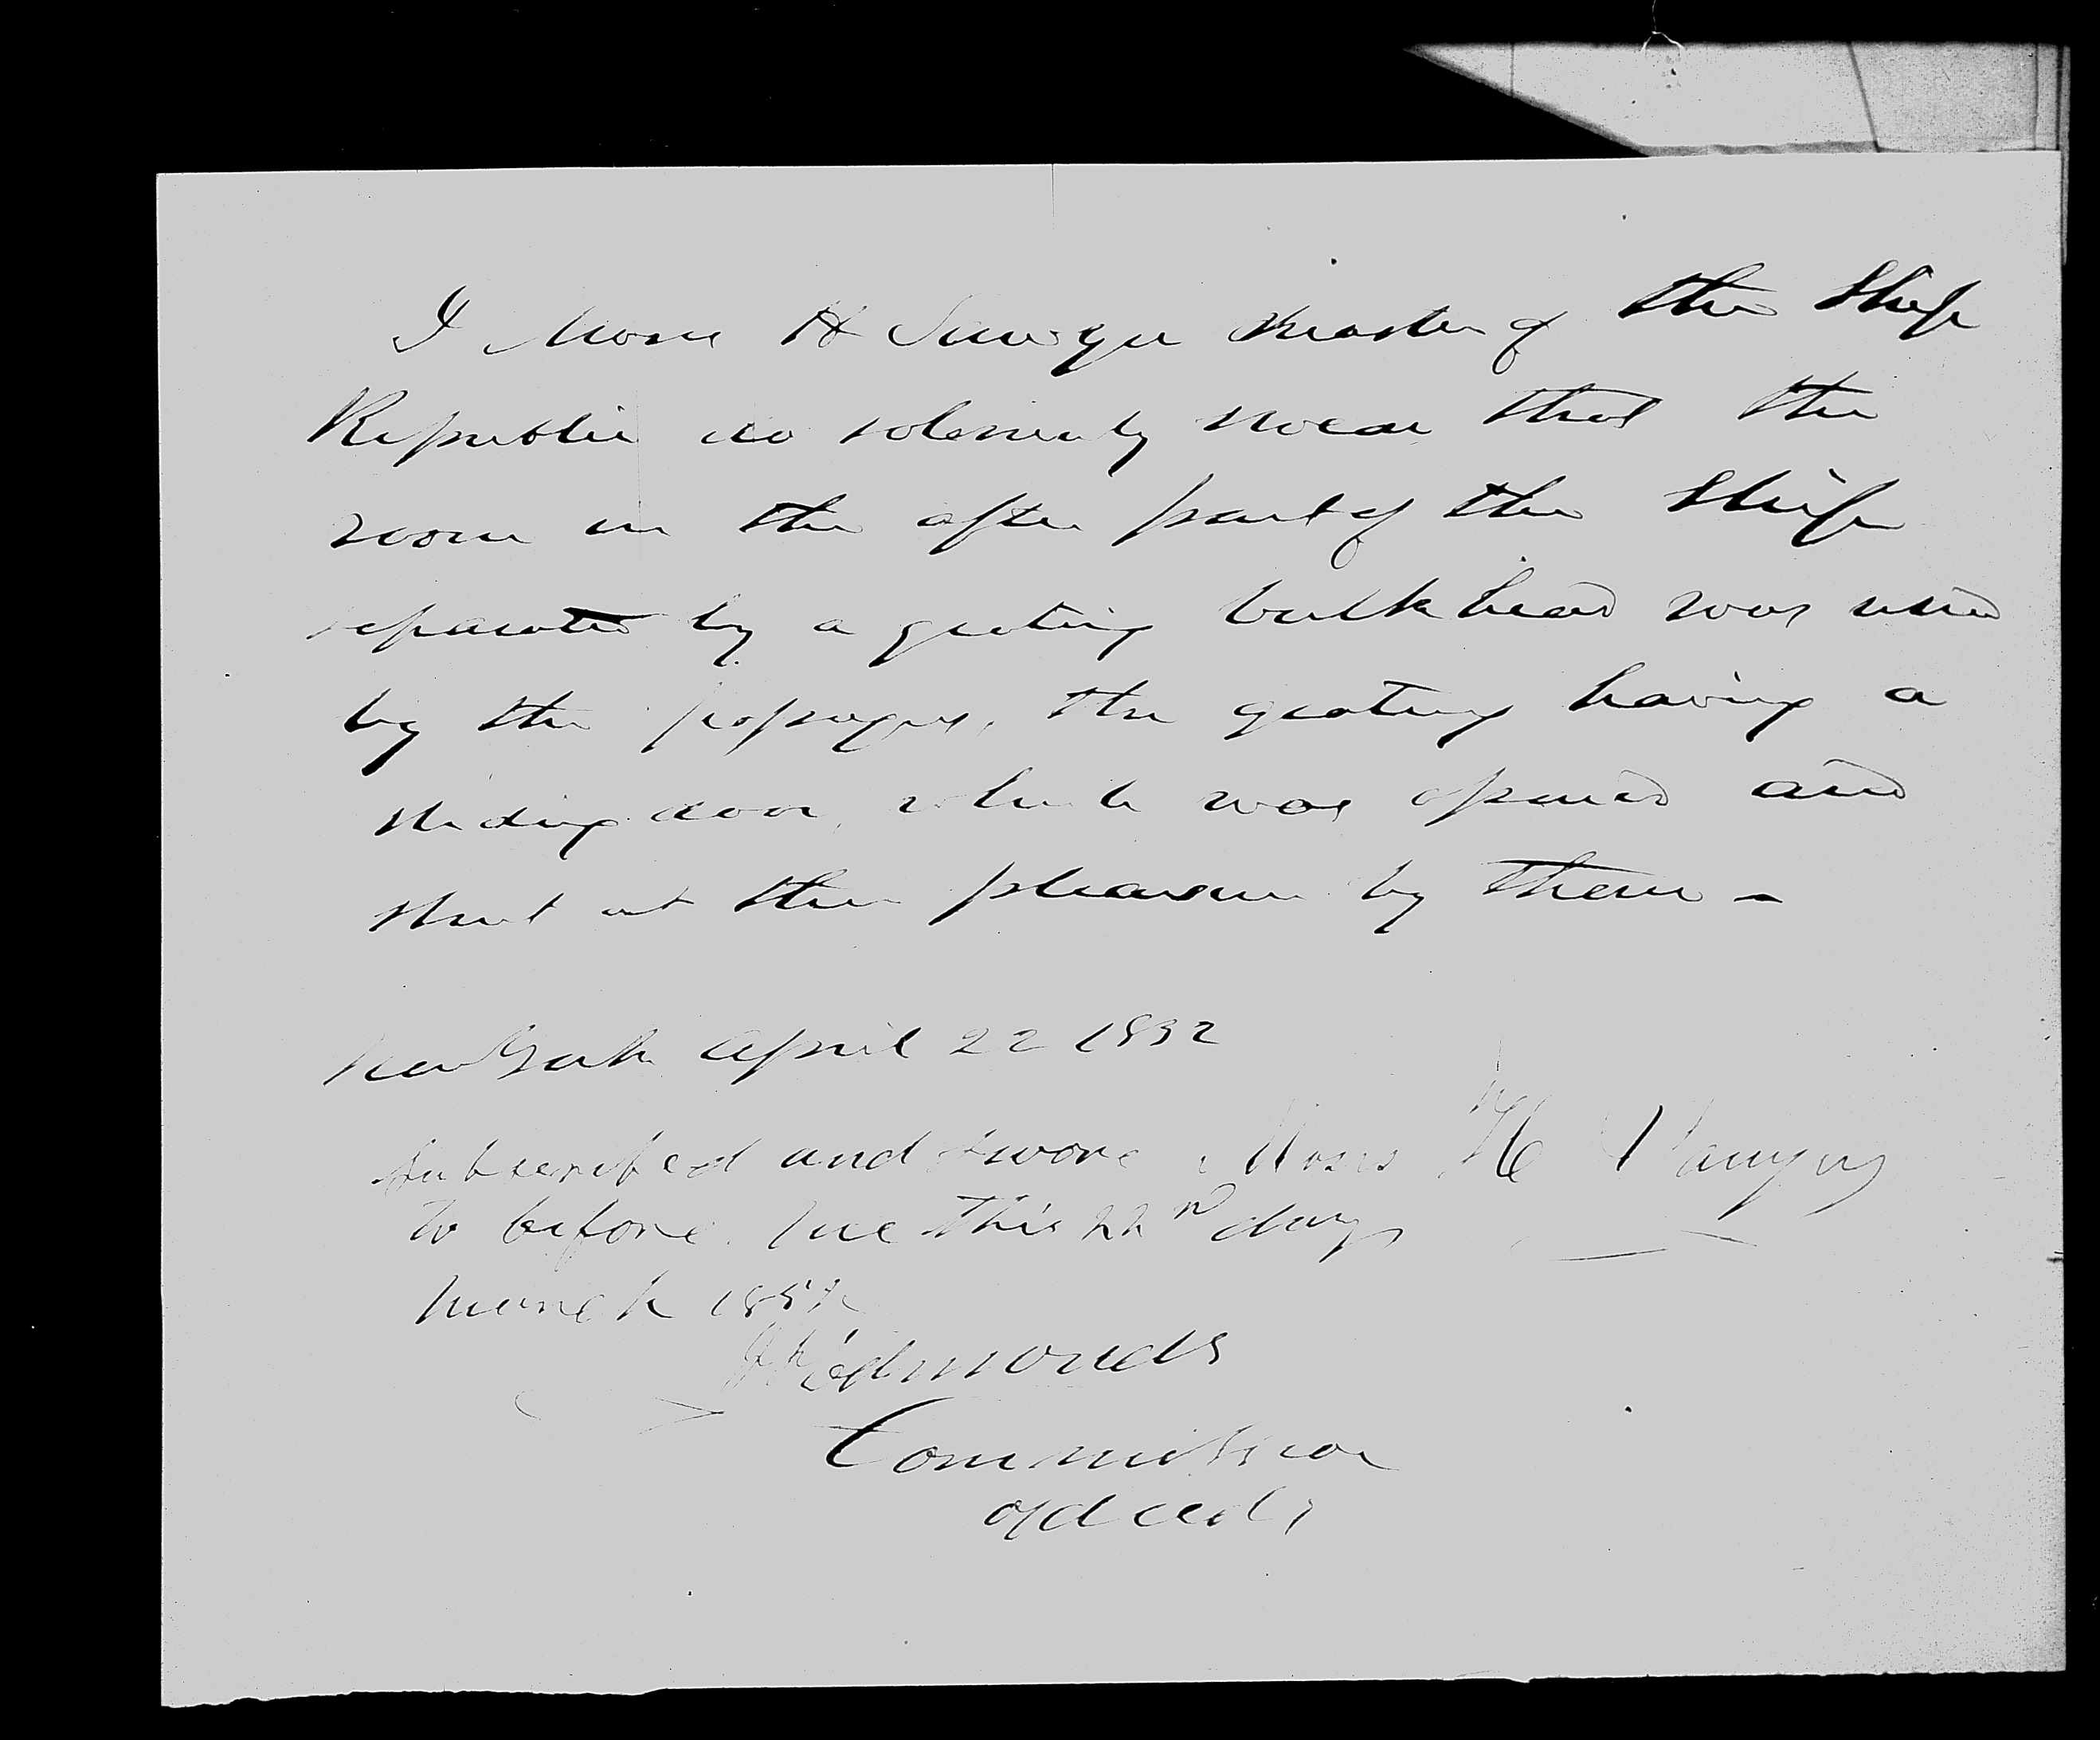 I Moses H Sawyer Master of the Ship
Republic do solemnly swear that the
room in the after part of the Ship
separated by a grating bulkhead was used
by the passengers, the grating having a
sliding door, which was opened and
shut at their pleasure by them -
New York April 22 1852
Subscribed and sworn Moses H Sawyer
to before me this 22nd day
March 1852
Edmonds
Commissioner
of deeds